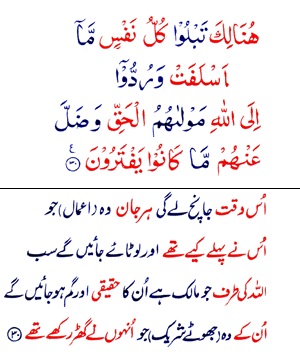 هُنَالِكَ تَبْلُوْا كُلُّ نَفْسٍ مَّاۤ
اَسْلَفَتْ وَ رُدُّوْۤا
اِلَى اللّٰهِ مَوْلٰىهُمُ الْحَقِّ وَ ضَلَّ
عَنْهُمْ مَّا كَانُوْا یَفْتَرُوْنَ ﴿۳۰﴾ ۧ
اُس وقت جانچ لے گی ہر جان وہ (اعمال) جو
اُس نے پہلے کیے تھے اور لوٹائے جائیں گے سب
اللہ کی طرف جو مالک ہے اُن کا حقیقی اور گم ہو جائیں گے
اُن کے وہ (جھوٹے شریک) جو اُنہوں نے گھڑ رکھے تھے ﴿۳۰﴾